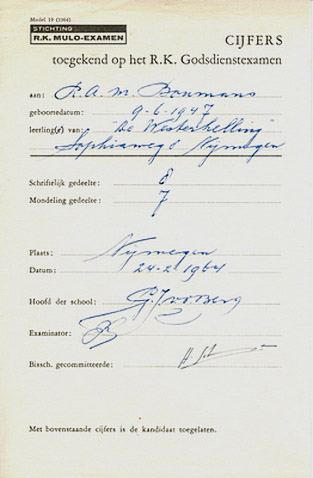 Model 19 (1964)
STICHTING
R.K. MULO-EXAMEN
CIJFERS
toegekend op het R.K. Godsdienstexamen
aan: R.A.M. Boumans
geboortedatum: 9-6-1947
leerling(e) van: "De Westerhelling"
Sophiaweg Nijmegen
Schriftelijk gedeelte: 8
Mondeling gedeelte: 7
Plaats: Nijmegen
Datum: 24-2-1964
Hoofd der school:
Examinator:
Bissch. gecommitteerde:
Met bovenstaande cijfers is de kandidaat toegelaten.